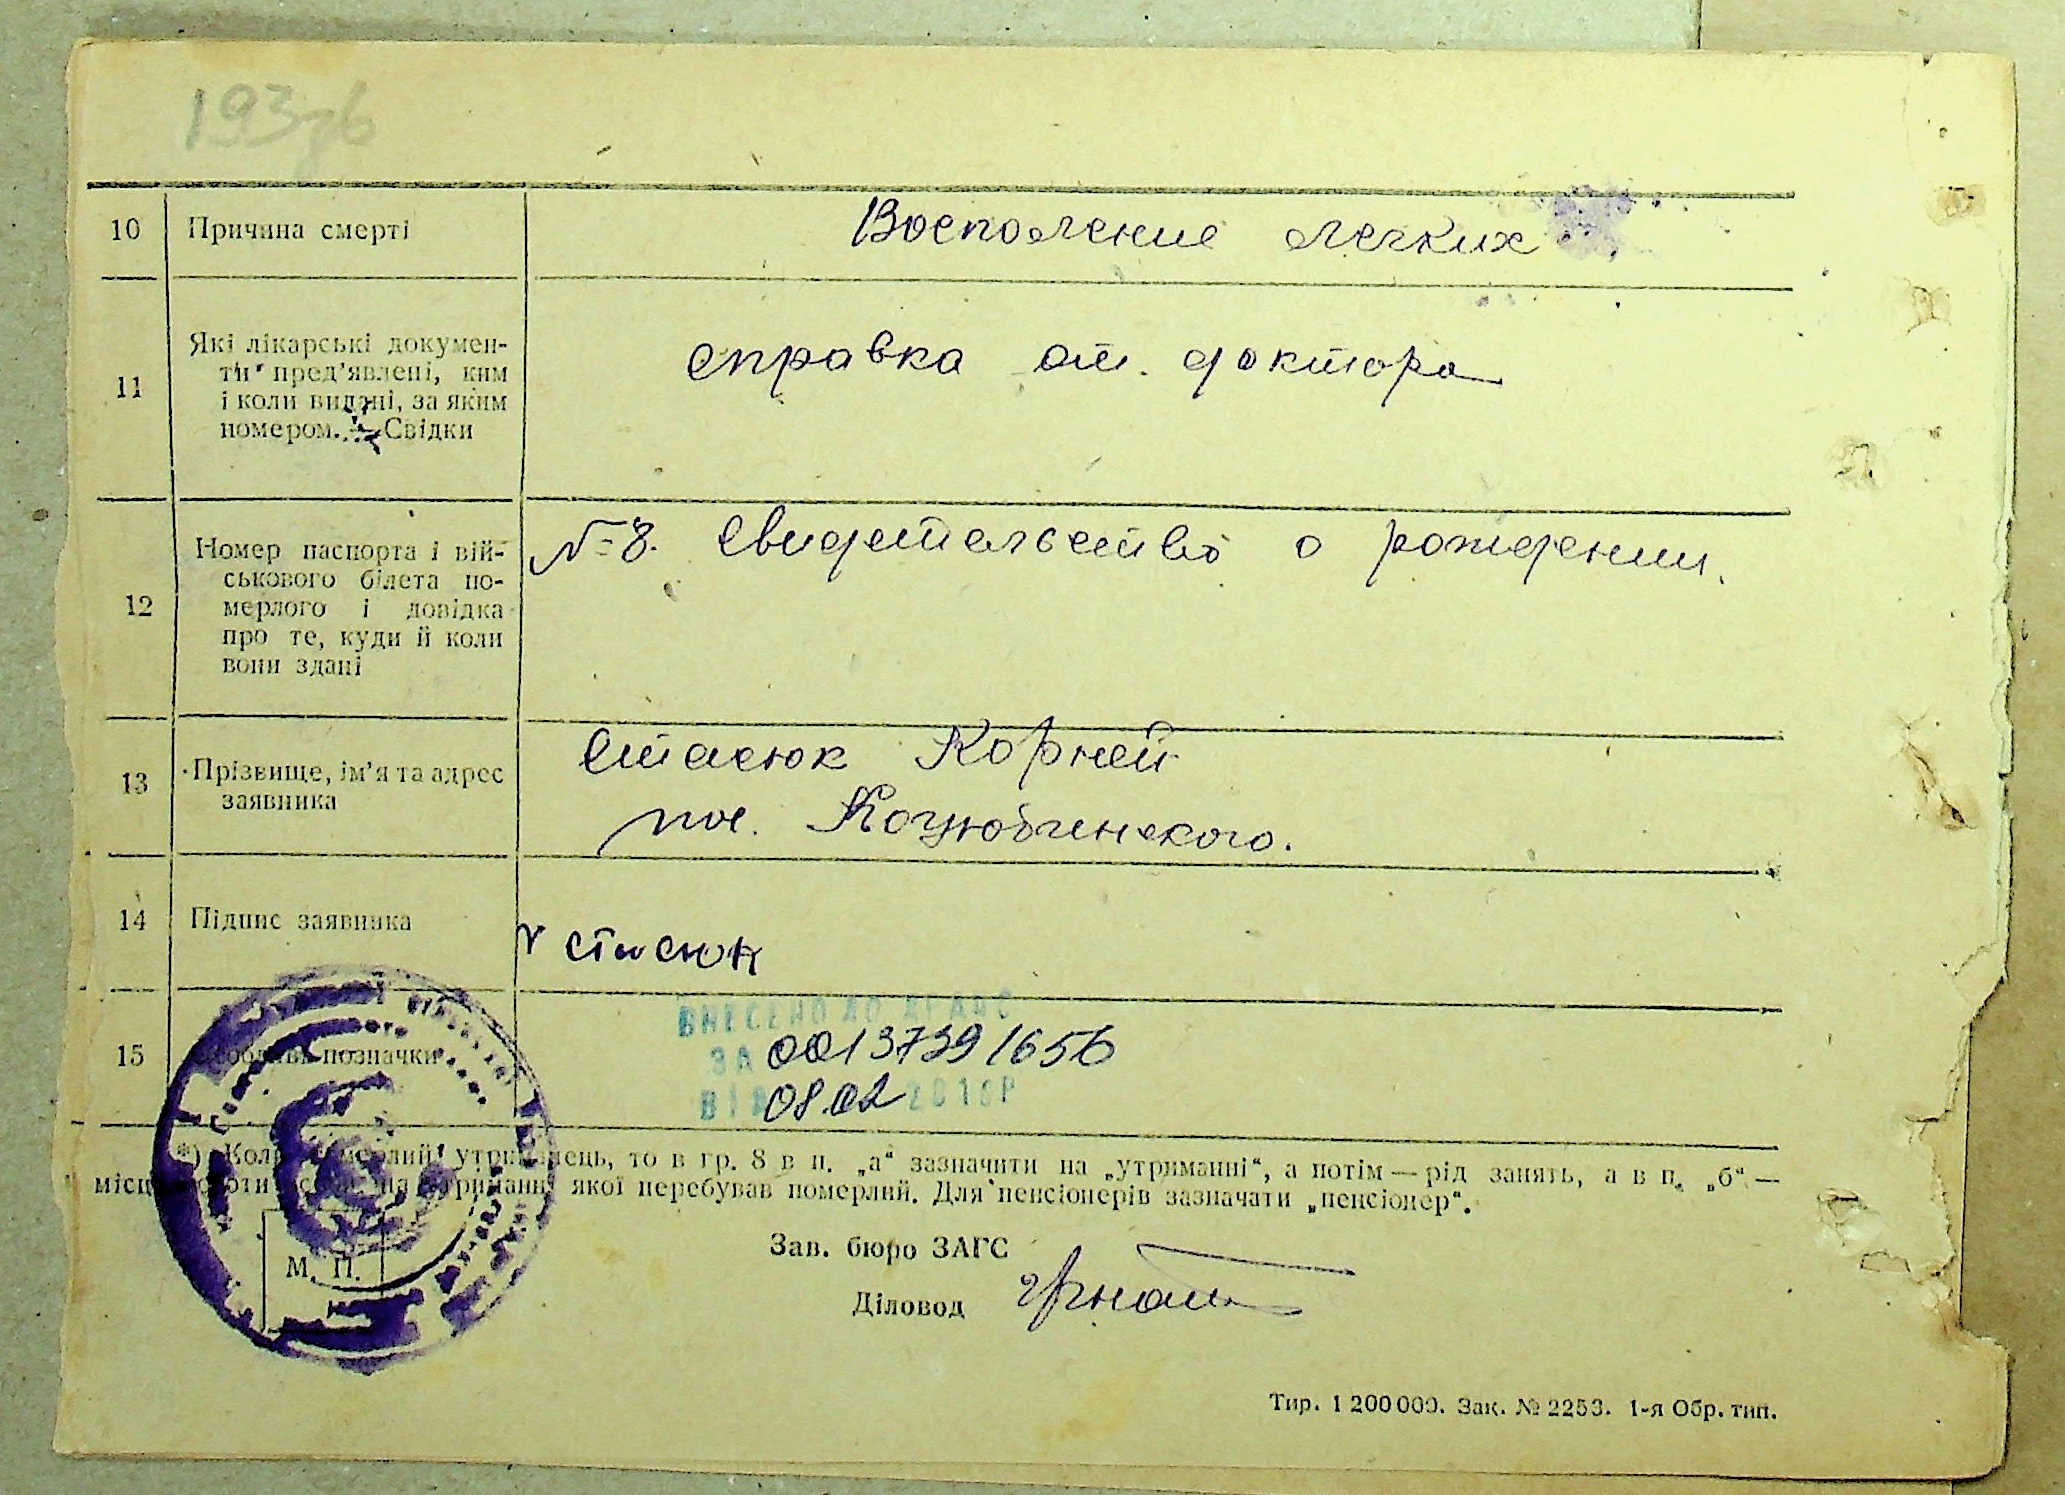 193зв
10 Причина смерті Восполение легких
11 Які лікарські докумен-
ти пред'явлені, ким
і коли видані, за яким
номером. Свідки
справка от. доктора
12 Номер паспорта і вій-
ськового білета по-
мерлого і довідка
про те, куди й коли
вони здані
№ 8. Свидетельство о рождении.
13 Прізвище, ім'я та адрес
заявника
Стасюк Корней
пос. Коцюбинского.
14 Підпис заявника
v стисюк
15 Особливі позначки
ВНЕСЕНО ДО ДРАЦС
ЗА 00137391656
ВІД 08.02 201 Р
*) Коли померлий утриманець, то в гр. 8 в п. „а“ зазначити на „утриманні“, а потім — рід занять, а в п. „б“ —
місце роботи особи, на утриманні якої перебував померлий. Для пенсіонерів зазначати „пенсіонер“.
М. П.
Зав. бюро ЗАГС
Діловод
Тир. 1 200 000. Зак. № 2253. 1-я Обр. тип.